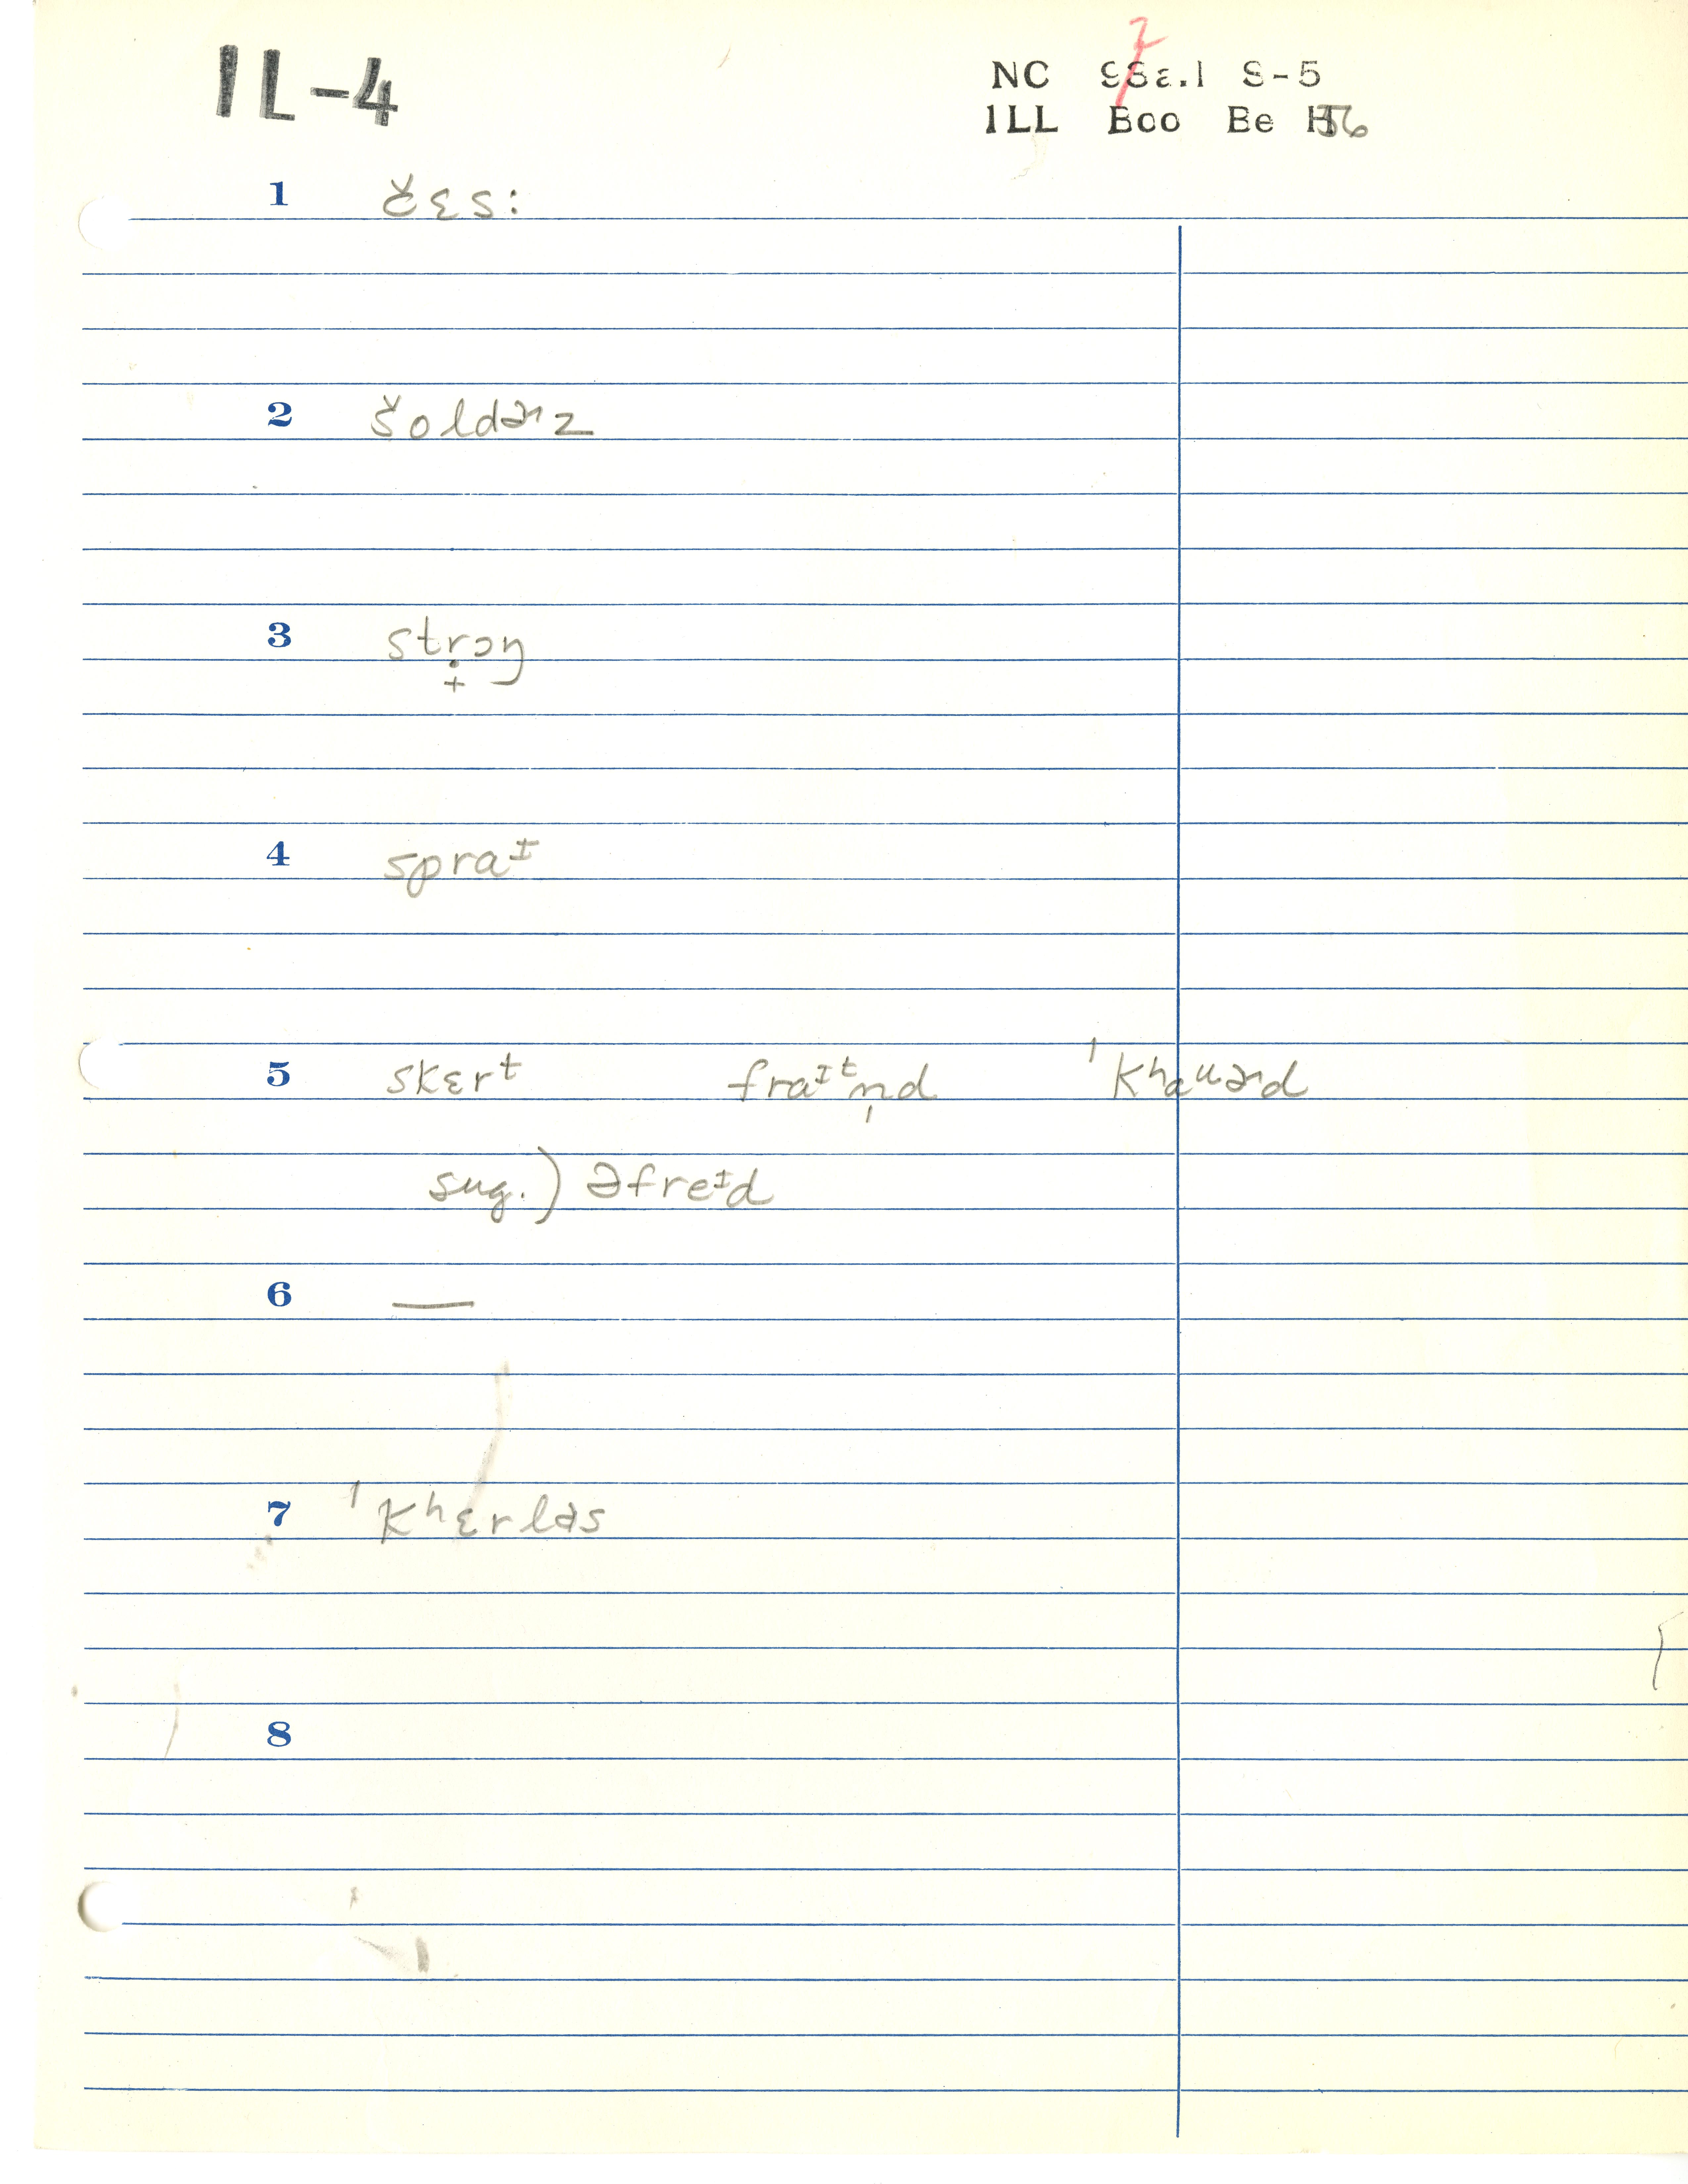 IL-4
NC 98a.1 S-5
7
ILL Boo Be 56
1 č̌ɛs:
2 šoldɚz
3 strɔŋ
4 spraᶦ
5 skɛrᵗ fraᶦᵗn̩d ˈkʰaᵘɚd
sug.) əfreᶦd
6 —
7 ˈkʰɛrləs
8